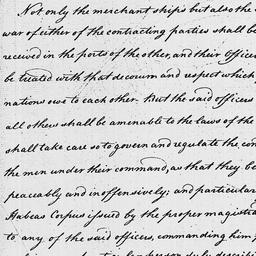 Not only the merchant ships but also the
war of either of the contracting parties shall be
received in the ports of the other, and their Officers
be treated with that decorum and respect which
nations owe to each other. But the said officers
all others shall be amenable to the laws of the
shall take care so to govern and regulate the con
the men under their command, as that they be
peaceably and inoffensively; and particular
Habeas Corpus issued by the proper magistra
to any of the said officers, commanding him